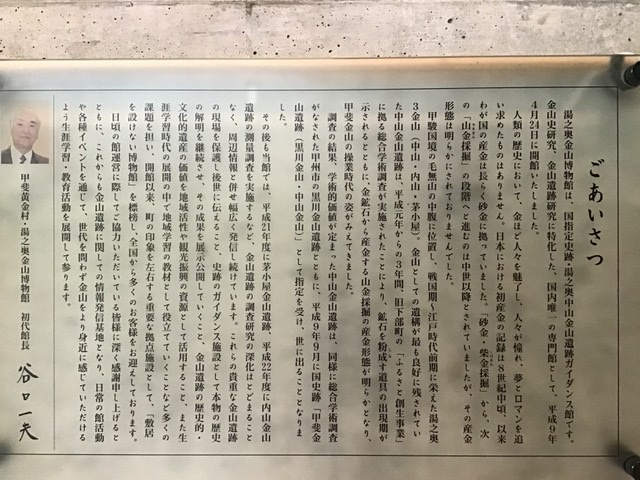 ごあいさつ
湯之奥金山博物館は、国指定史跡・湯之奥中山金山遺跡ガイダンス館です。
金山史研究、金山遺跡研究に特化した、国内唯一の専門館として、平成9年
4月24日に開館いたしました。
人類の歴史において、金ほど人々を魅了し、人々が憧れ、夢とロマンを追
い求めたものはありません。日本における初産金の記録は8世紀中頃、以来
わが国の産金は長らく砂金に拠っていました。「砂金・柴金採掘」から、次
の「山金採掘」の段階へと進むのは中世以降とされていましたが、その産金
形態は明らかにされておりませんでした。
甲駿国境の毛無山の中腹に位置し、戦国期～江戸時代前期に栄えた湯之奥
3金山（中山・内山・茅小屋）。金山としての遺構が最も良好に残されてい
た中山金山遺跡は、平成元年からの3年間、旧下部町の「ふるさと創生事業」
に拠る総合学術調査が実施されたことにより、鉱石を粉成す道具の出現期が
示されるとともに、金鉱石から産金する山金採掘の産金形態が明らかとなり、
甲斐金山の操業時代の姿がみえてきました。
調査の結果、学術的価値が定まった中山金山遺跡は、同様に総合学術調査
がなされた甲州市の黒川金山遺跡とともに、平成9年9月に国史跡「甲斐金
山遺跡（黒川金山・中山金山）」として指定を受け、世に出ることとなりま
した。
その後も当館では、平成21年度に茅小屋金山遺跡、平成22年度に内山金山
遺跡の測量調査を実施するなど、金山遺跡の調査研究の深化はとどまること
なく、周辺情報と併せ幅広く発信し続けています。これらの貴重な金山遺跡
の現場を保護し後世に伝えること、史跡のガイダンス施設として本物の歴史
の解明を継続させ、その成果を展示公開していくこと、金山遺跡の歴史的・
文化的遺産の価値を地域活性や観光振興の資源として活用すること、また生
涯学習時代の展開の中で地域学習の教材として役立てていくことなど多くの
課題を担い、開館以来、町の印象を左右する重要な拠点施設として、「敷居
を設けない博物館」を標榜し、全国から多くのお客様をお迎えしております。
日頃の館運営に際してご協力いただいている皆様に深く感謝申し上げると
ともに、これからも金山遺跡に関しての情報発信基地となり、日常の館活動
や各種イベントを通じて、世代を問わず金山をより身近に感じていただける
よう生涯学習・教育活動を展開して参ります。
甲斐黄金村・湯之奥金山博物館　初代館長　谷口一夫